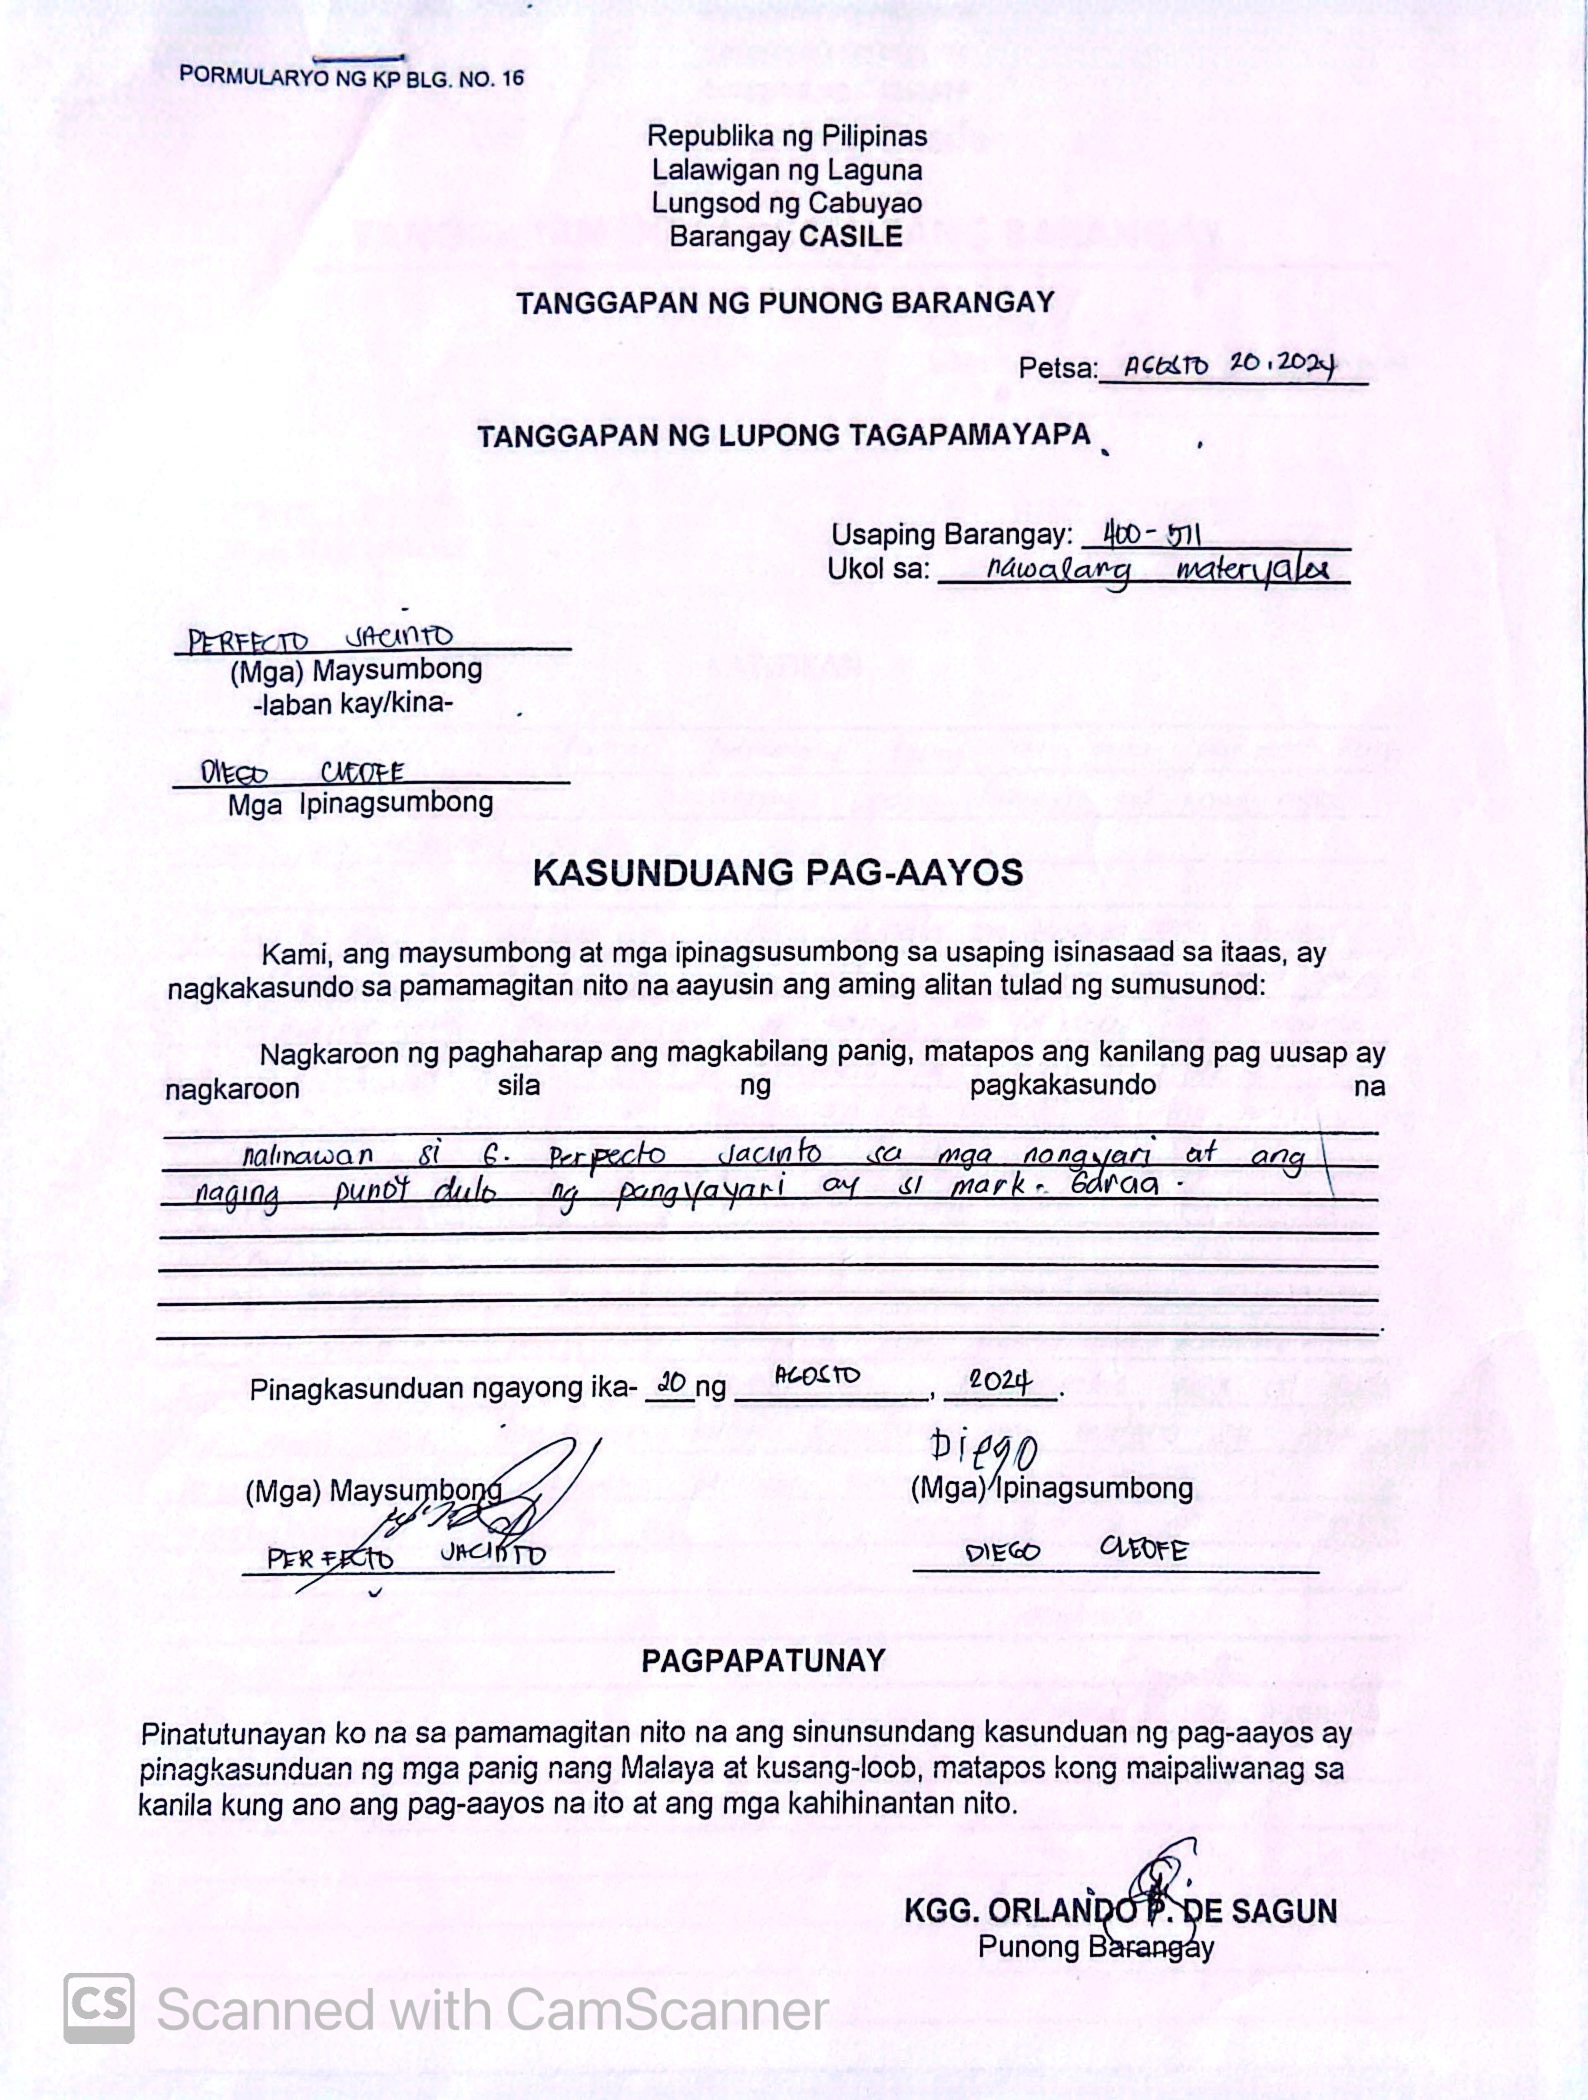 PORMULARYO NG KP BLG. NO. 16
Republika ng Pilipinas
Lalawigan ng Laguna
Lungsod ng Cabuyao
Barangay CASILE
TANGGAPAN NG PUNONG BARANGAY
Petsa: AGOSTO 20, 2024
TANGGAPAN NG LUPONG TAGAPAMAYAPA
Usaping Barangay: 400-511
Ukol sa: nawalang materyales
PERFECTO JACINTO
(Mga) Maysumbong
-laban kay/kina-
DIEGO CLEOFE
Mga Ipinagsumbong
KASUNDUANG PAG-AAYOS
Kami, ang maysumbong at mga ipinagsusumbong sa usaping isinasaad sa itaas, ay
nagkakasundo sa pamamagitan nito na aayusin ang aming alitan tulad ng sumusunod:
Nagkaroon ng paghaharap ang magkabilang panig, matapos ang kanilang pag uusap ay
nagkaroon sila ng pagkakasundo na
nalinawan si G. Perpecto Jacinto sa mga nangyari at ang
naging puno't dulo ng pangyayari ay si mark.
Pinagkasunduan ngayong ika- 20 ng AGOSTO, 2024.
Diego
(Mga) Maysumbong (Mga) Ipinagsumbong
PERFECTO JACINTO DIEGO CLEOFE
PAGPAPATUNAY
Pinatutunayan ko na sa pamamagitan nito na ang sinunsundang kasunduan ng pag-aayos ay
pinagkasunduan ng mga panig nang Malaya at kusang-loob, matapos kong maipaliwanag sa
kanila kung ano ang pag-aayos na ito at ang mga kahihinantan nito.
KGG. ORLANDO P. DE SAGUN
Punong Barangay
CS Scanned with CamScanner